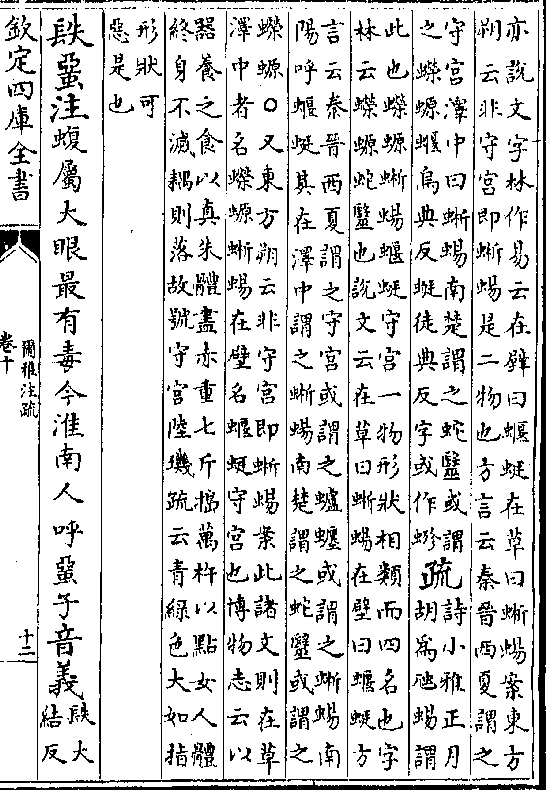 亦說文字林作易云在壁曰蝘蜓在草曰蜥蜴案東方
朔云非守宮即蜥蜴是二物也方言云秦晉西夏謂之
守宮澤中曰蜥蜴南楚謂之蛇醫或謂
之蠑螈蝘烏典反蜓徒典反字或作
疏
詩小雅正月
胡為虺蜴謂
此也蠑螈蜥蜴蝘蜓守宮一物形狀相類而四名也字
林云蠑螈蛇醫也說文云在草曰蜥蜴在壁曰蝘蜓方
言云秦晉西夏謂之守宮或謂之蠦𧔥或謂之蜥蜴南
陽呼蝘蜓其在澤中謂之蜥蜴南楚謂之蛇醫或謂之
蠑螈○又東方朔云非守宮即蜥蜴案此諸文則在草
澤中者名蠑螈蜥蜴在壁名蝘蜓守宮也博物志云以
器養之食以真朱體盡赤重七斤擣萬杵以點女人體
終身不滅耦則落故號守宮陸璣疏云青綠色大如指
形狀可
惡是也
镻蝁注蝮屬大眼最有毒今淮南人呼蝁子音義
镻大
結反
欽定四庫全書
爾雅注疏
卷十
十二